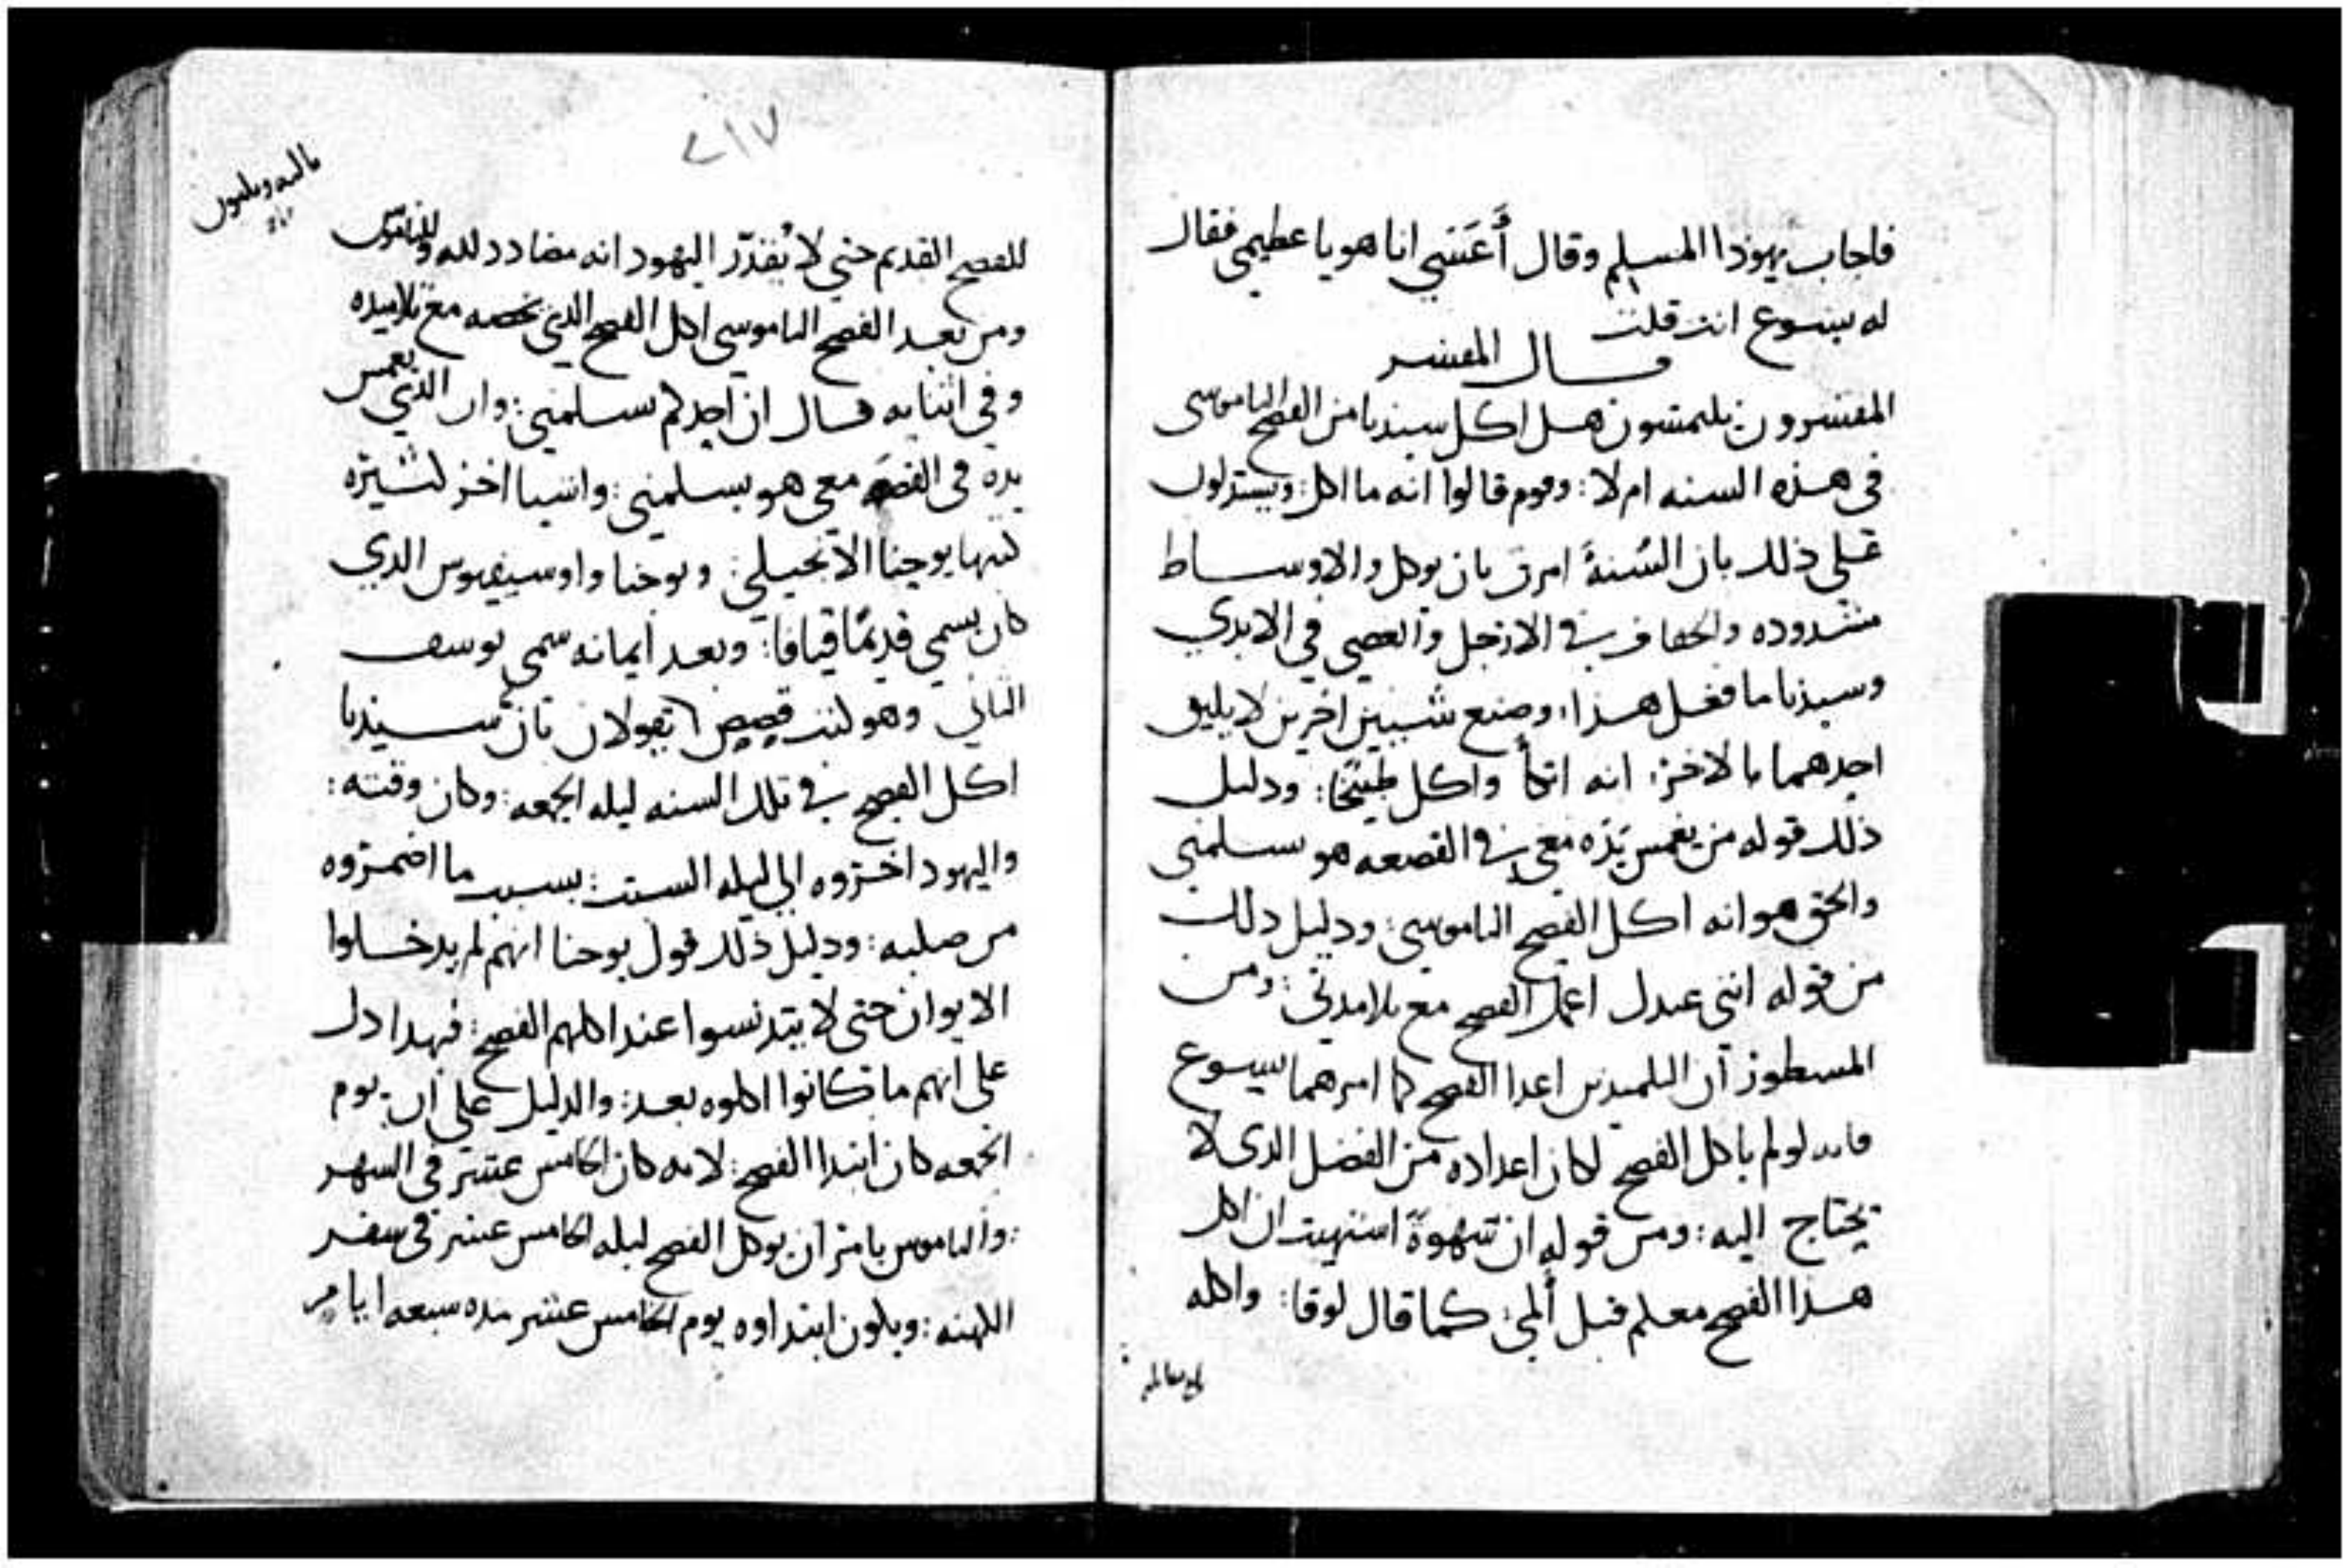 فاجاب يهوذا المسلم وقال أَعَسَي انا هو يا عظيمي فقال
له يسوع انت قلت
قال المفسر
المفسرون يلتمسون هل اكل سيدنا من الفصح الناموسي
في هذه السنه ام لا : وقوم قالوا انه ما اكل : ويستدلون
على ذلك بان السُنةَ امرت بان يوكل والاوساط
مشدوده والخفاف في الارجل والعصي في الايدي
وسيدنا ما فعل هذا : وصنع شيين اخرين لا يليق
احدهما بالاخر : انه اتكأ واكل طبيخًا : ودليل
ذلك قوله من يغمس يده معي في القصعه هو يسلمني
والحق هو انه اكل الفصح الناموسي : ودليل ذلك
من قوله انني عندك اعمل الفصح مع تلامدتي : ومن
المسطور ان التلميدين اعدا الفصح كما امرهما يسوع
فانه لو لم ياكل الفصح لكان اعداده من الفضل الدى لا
يحتاج اليه : ومن قوله ان شهوةً اشتهيت ان اكل
هذا الفصح معكم قبل ألمي : كما قال لوقا : واكله
٢١٧
للفصح القديم حتي لا يُقدّر اليهود انه مضادد لله وللناموس
ومن بعد الفصح الناموسي اكل الفصح الذي يخصه مع تلاميده
وفي اثنايه قال ان احدكم يسلمني : وان الدي يغمس
يده في القصعه معي هو يسلمني : واشيا اخر كثيره
كتبها يوحنا الانجيلي : ويوحنا واوسيفيوس الدي
كان يسمي قديمًا قيافا : وبعد ايمانه سمي يوسف
الثاني وهو كتب قصص يقولان بان سيدنا
اكل الفصح في تلك السنه ليله الجمعه : وكان وقته :
واليهود اخروه الي ليله السبت : بسبب ما اضمروه
من صلبه : ودليل ذلك قول يوحنا انهم لم يدخلوا
الايوان حتى لا يتدنسوا عند اكلهم الفصح : فهدا دل
على انهم ما كانوا اكلوه بعد : والدليل على ان يوم
الجمعه كان ابتدا الفصح : لانه كان الخامس عشر في الشهر
: والناموس يامر ان يوكل الفصح ليله الخامس عشر في سفر
الكهنه : ويكون ابتداوه يوم الخامس عشر مده سبعه ايام